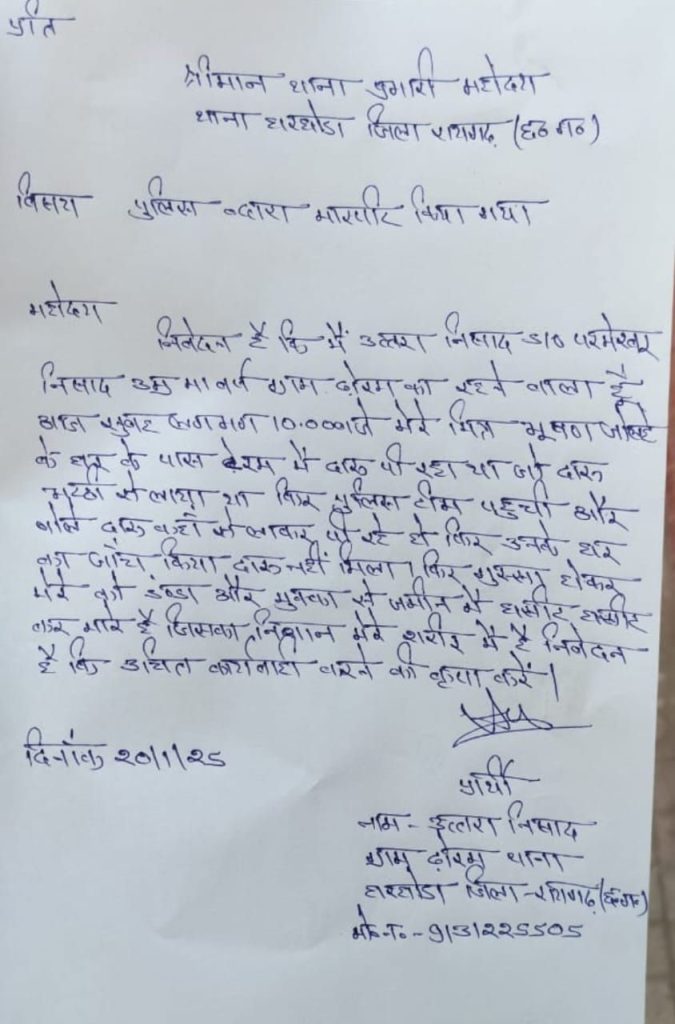 प्रति
श्रीमान थाना प्रभारी महोदय
थाना घरघोडा जिला रायगढ़ (छ०ग०)
विसय पुलिस व्दारा मारपीट किया गया
महोदय
निवेदन है कि मैं उत्तरा निसाद S/o परमेश्वर
निसाद उम्र वर्ष ग्राम ढोरम का रहने वाला हूँ
आज सुबह लगभग 10.00 बजे मेरे मित्र भूषण
के घर के पास में दारू पी रहा था जो दारू
भट्ठी से लाया था फिर पुलिस टीम पहुची और
बोले दारू कहाँ से लाकर पी रहे हो फिर उनके घर
का जाँच किया दारू नहीं मिला। फिर गुस्सा होकर
मेरे को डंण्डा और मुक्का से जमीन में घसीट घसीट
कर मारे है जिसका निशान मेरे शरीर में है निवेदन
है कि उचित कार्यवाही करने की कृपा करें।
दिनाँक 20/1/25
प्रार्थी
नाम - उत्तरा निसाद
ग्राम ढोरम थाना
घरघोडा जिला - रायगढ़ (छ०ग०)
मो०न० - 9131225505